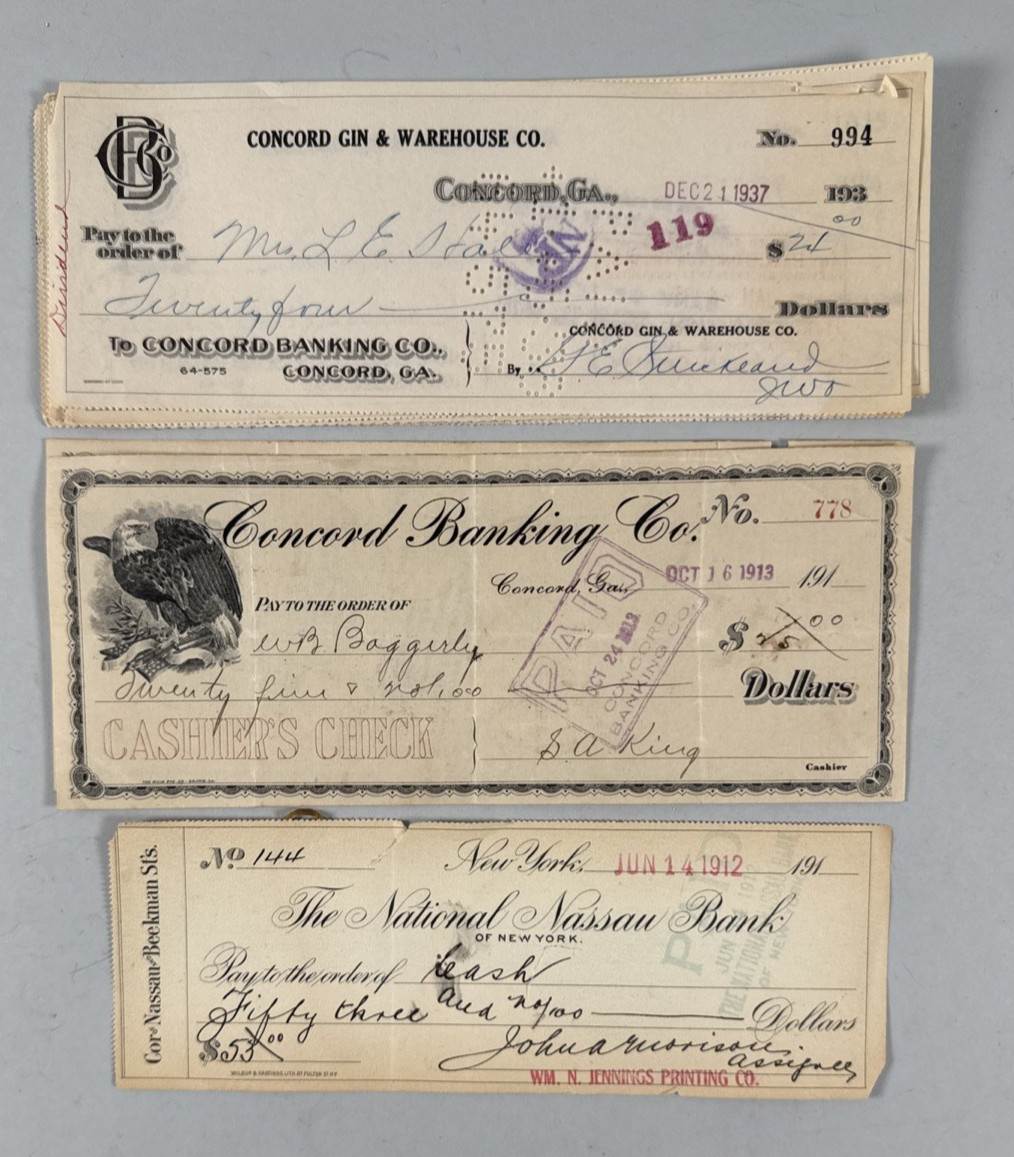 CONCORD GIN & WAREHOUSE CO.
No. 994
CONCORD, GA., DEC 21 1937 193
Dividend
Pay to the
order of Mrs. L E
119
$24 00
Twenty four
Dollars
TO CONCORD BANKING CO.,
64-575 CONCORD, GA.
CONCORD GIN & WAREHOUSE CO.
By
Concord Banking Co. No. 778
Concord, Ga., OCT 16 1913 191
PAY TO THE ORDER OF
WB Baggerly $25 00
Twenty five & no/100 Dollars
PAID
OCT 24 1913
CONCORD
BANKING CO.
CASHIER'S CHECK
S A King
Cashier
Cor of Nassau and Beekman Sts.
No 144 New York, JUN 14 1912 191
The National Nassau Bank
OF NEW YORK.
Pay to the order of Cash
Fifty three and no/100 Dollars
$53 00
John A Morrison
Assignee
WM. N. JENNINGS PRINTING CO.
PAID
JUN
THE NATIONAL NASSAU BANK
OF NEW